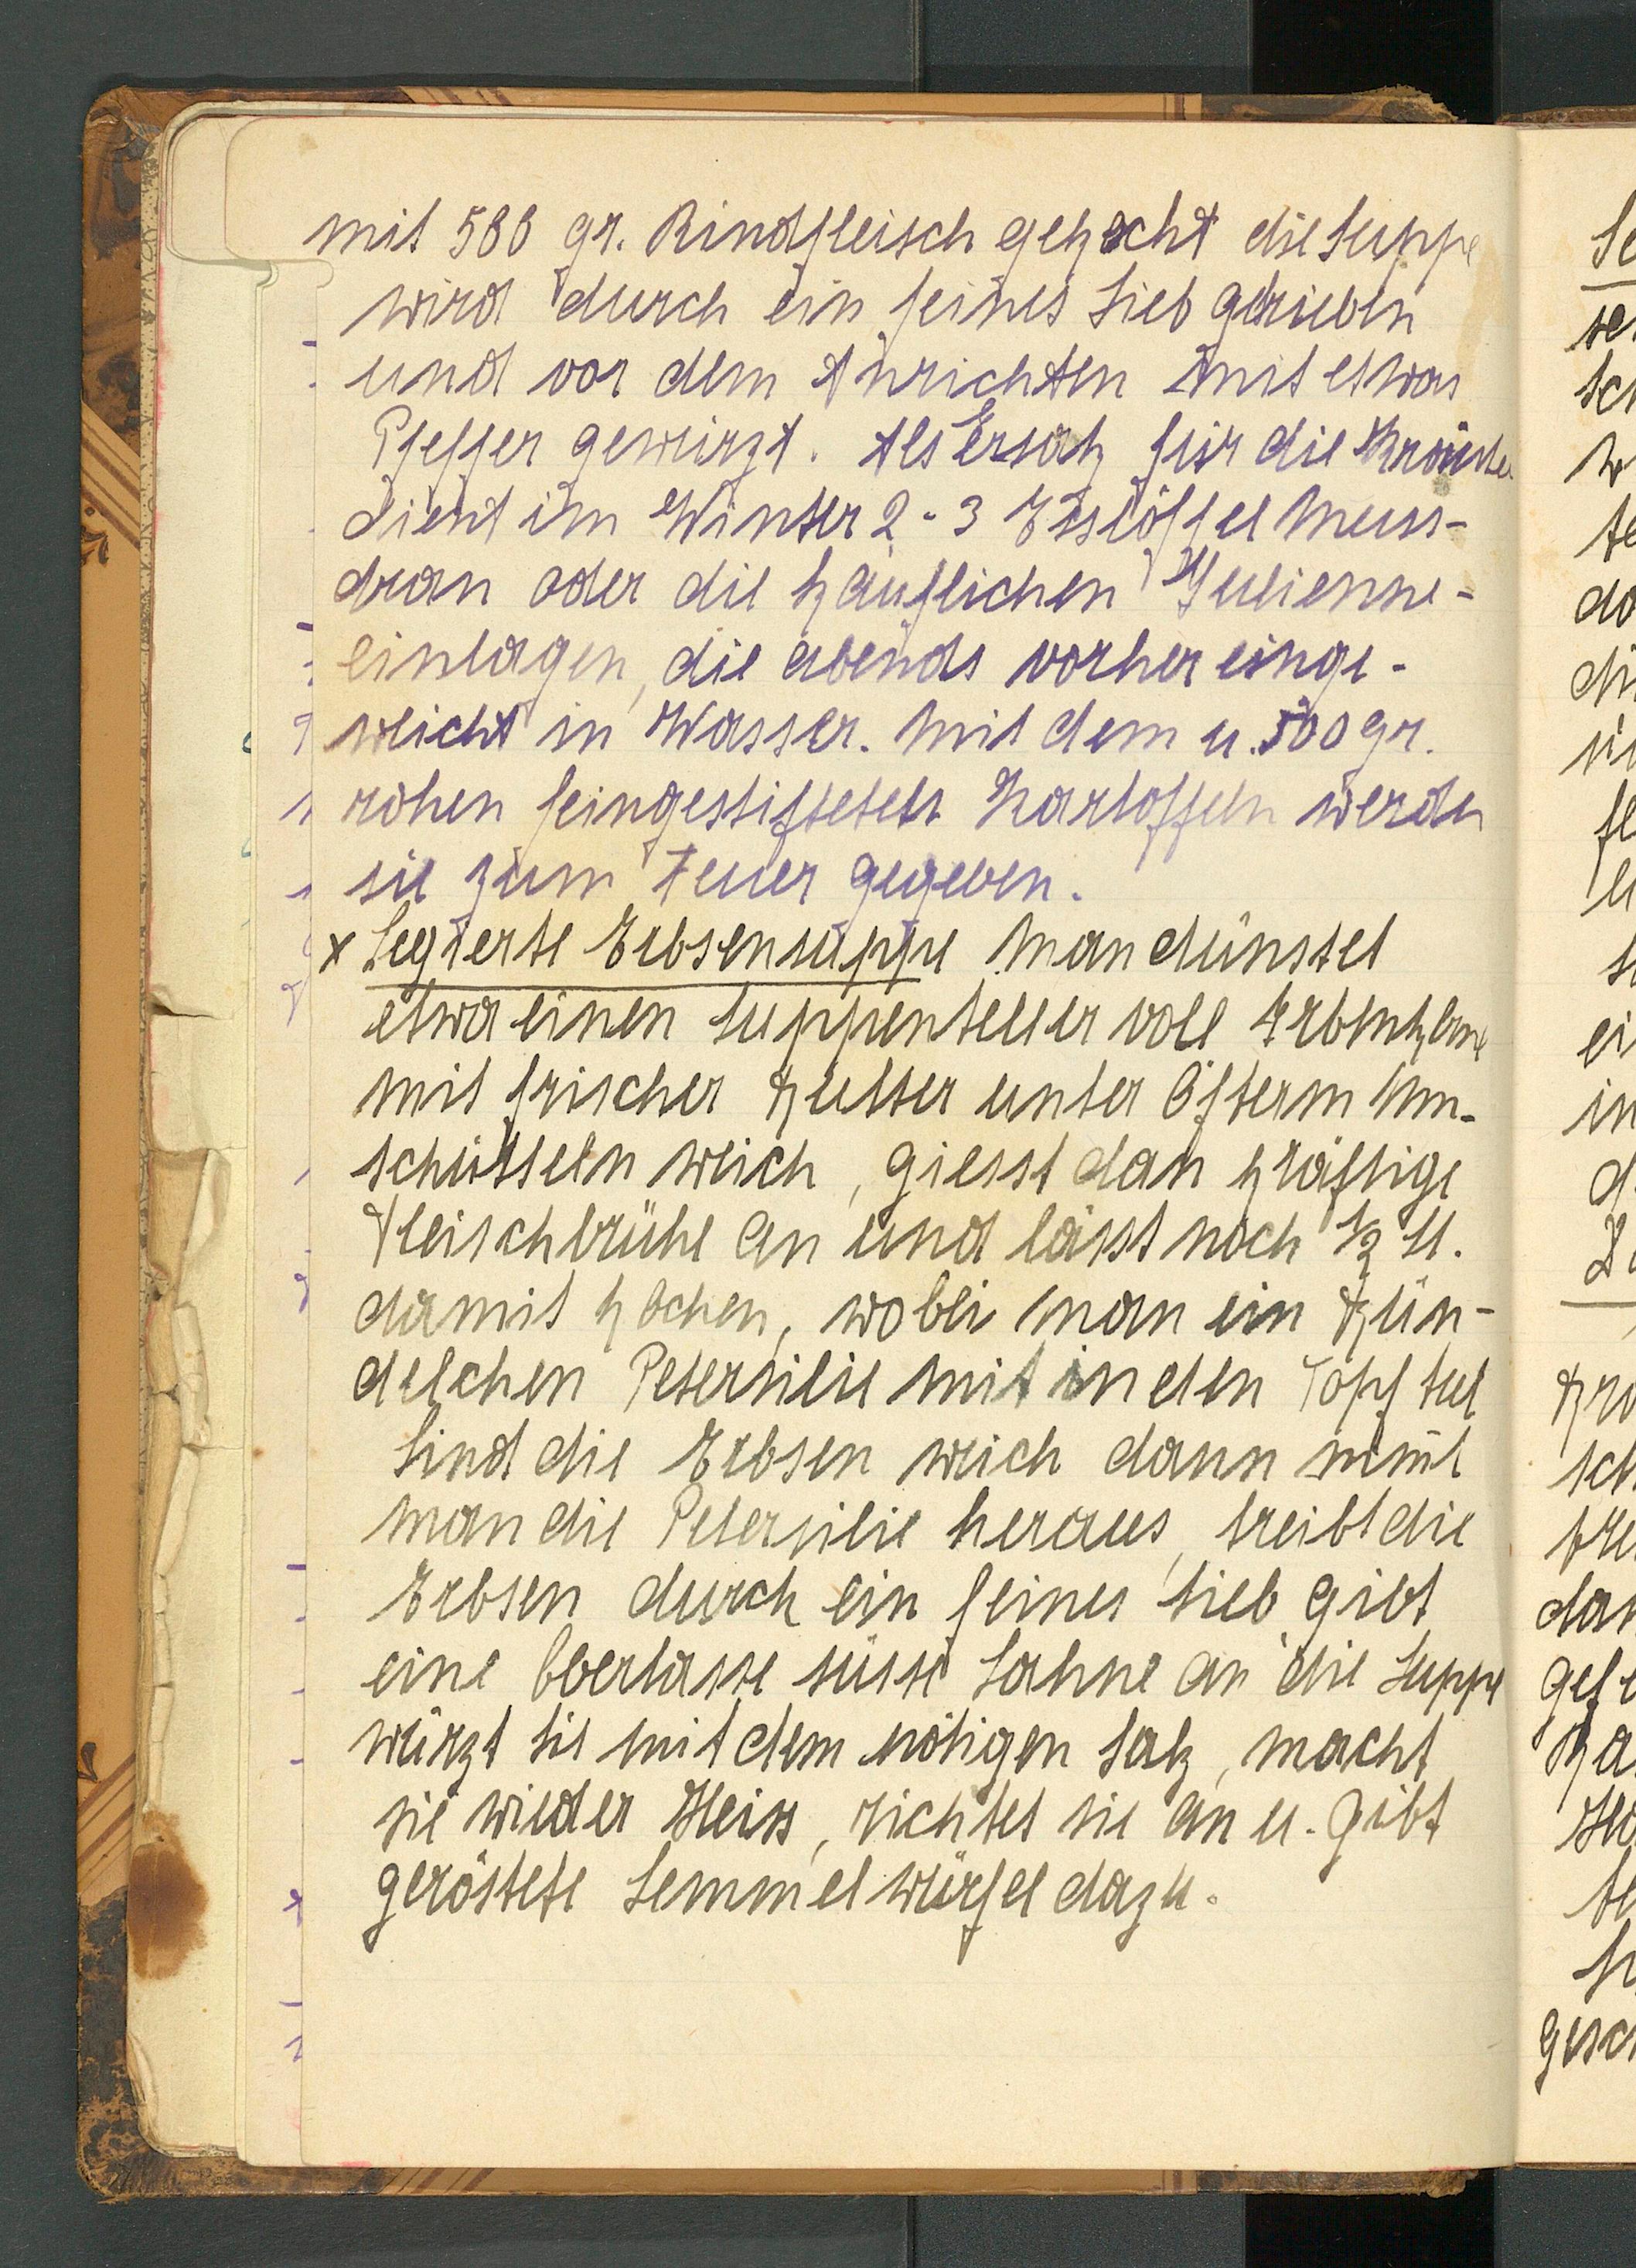 mit 500 gr. Rindfleisch gekocht die Suppe
wird durch ein feines Sieb getrieben
und vor dem Anrichten mit etwas
Pfeffer gewürzt. Als Ersatz für die Kräuter
dient im Winter 2-3 Esslöffel
oder die käuflichen Julienne-
einlagen, die abends vorher einge-
weicht in Wasser. Mit dem u. 500 gr.
rohen feingestifteten Kartoffeln werden
sie zum Feuer gegeben.
x Legierte Erbsensuppe Man dünstet
etwa einen Suppenteller voll
mit frischer Butter unter Öfterm Um-
schütteln weich, giesst dan kräftige
Fleischbrühe an und lässt noch 1/2 St.
damit kochen, wobei man ein Bün-
delchen Petersilie mit in den Topf tut
Sind die Erbsen weich dann nimt
man die Petersilie heraus, treibt die
Erbsen durch ein feines Sieb gibt
eine Obertasse süsse Sahne an die Suppe
würzt sie mit dem nötigen Salz, macht
sie wieder Heiss, richtet sie an u. gibt
geröstete Semmelwürfel dazu.